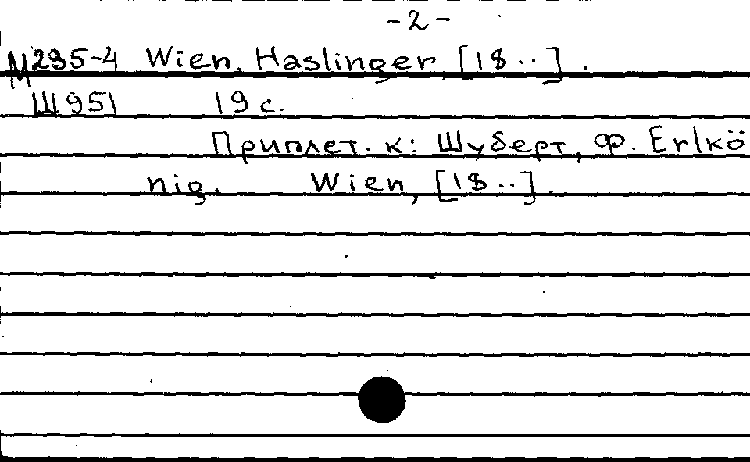 -2-
М235-4 Wien, Haslinger, [18..].
Ш951 19 с.
Приплет. к: Шуберт, Ф. Erlkö
nig. Wien, [18..].